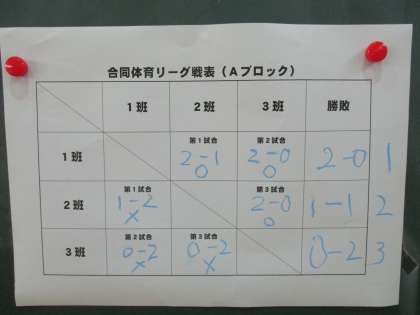 合同体育リーグ戦表(Aブロック)
1班 2班 3班 勝敗
1班 第1試合 2-1 ○ 第2試合 2-0 ○ 2-0 1
2班 第1試合 1-2 × 第3試合 2-0 ○ 1-1 2
3班 第2試合 0-2 × 第3試合 0-2 × 0-2 3